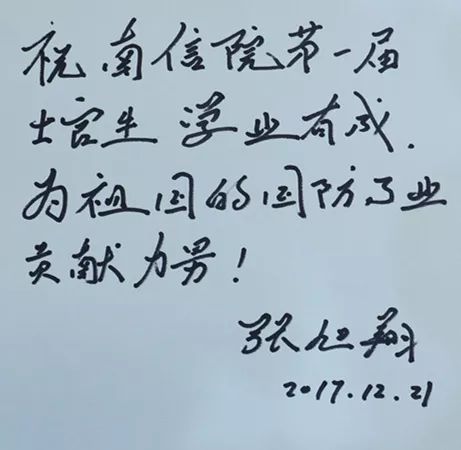 祝南信院第一届
士官生 学业有成.
为祖国的国防事业
贡献力量!
张旭翔
2017.12.21